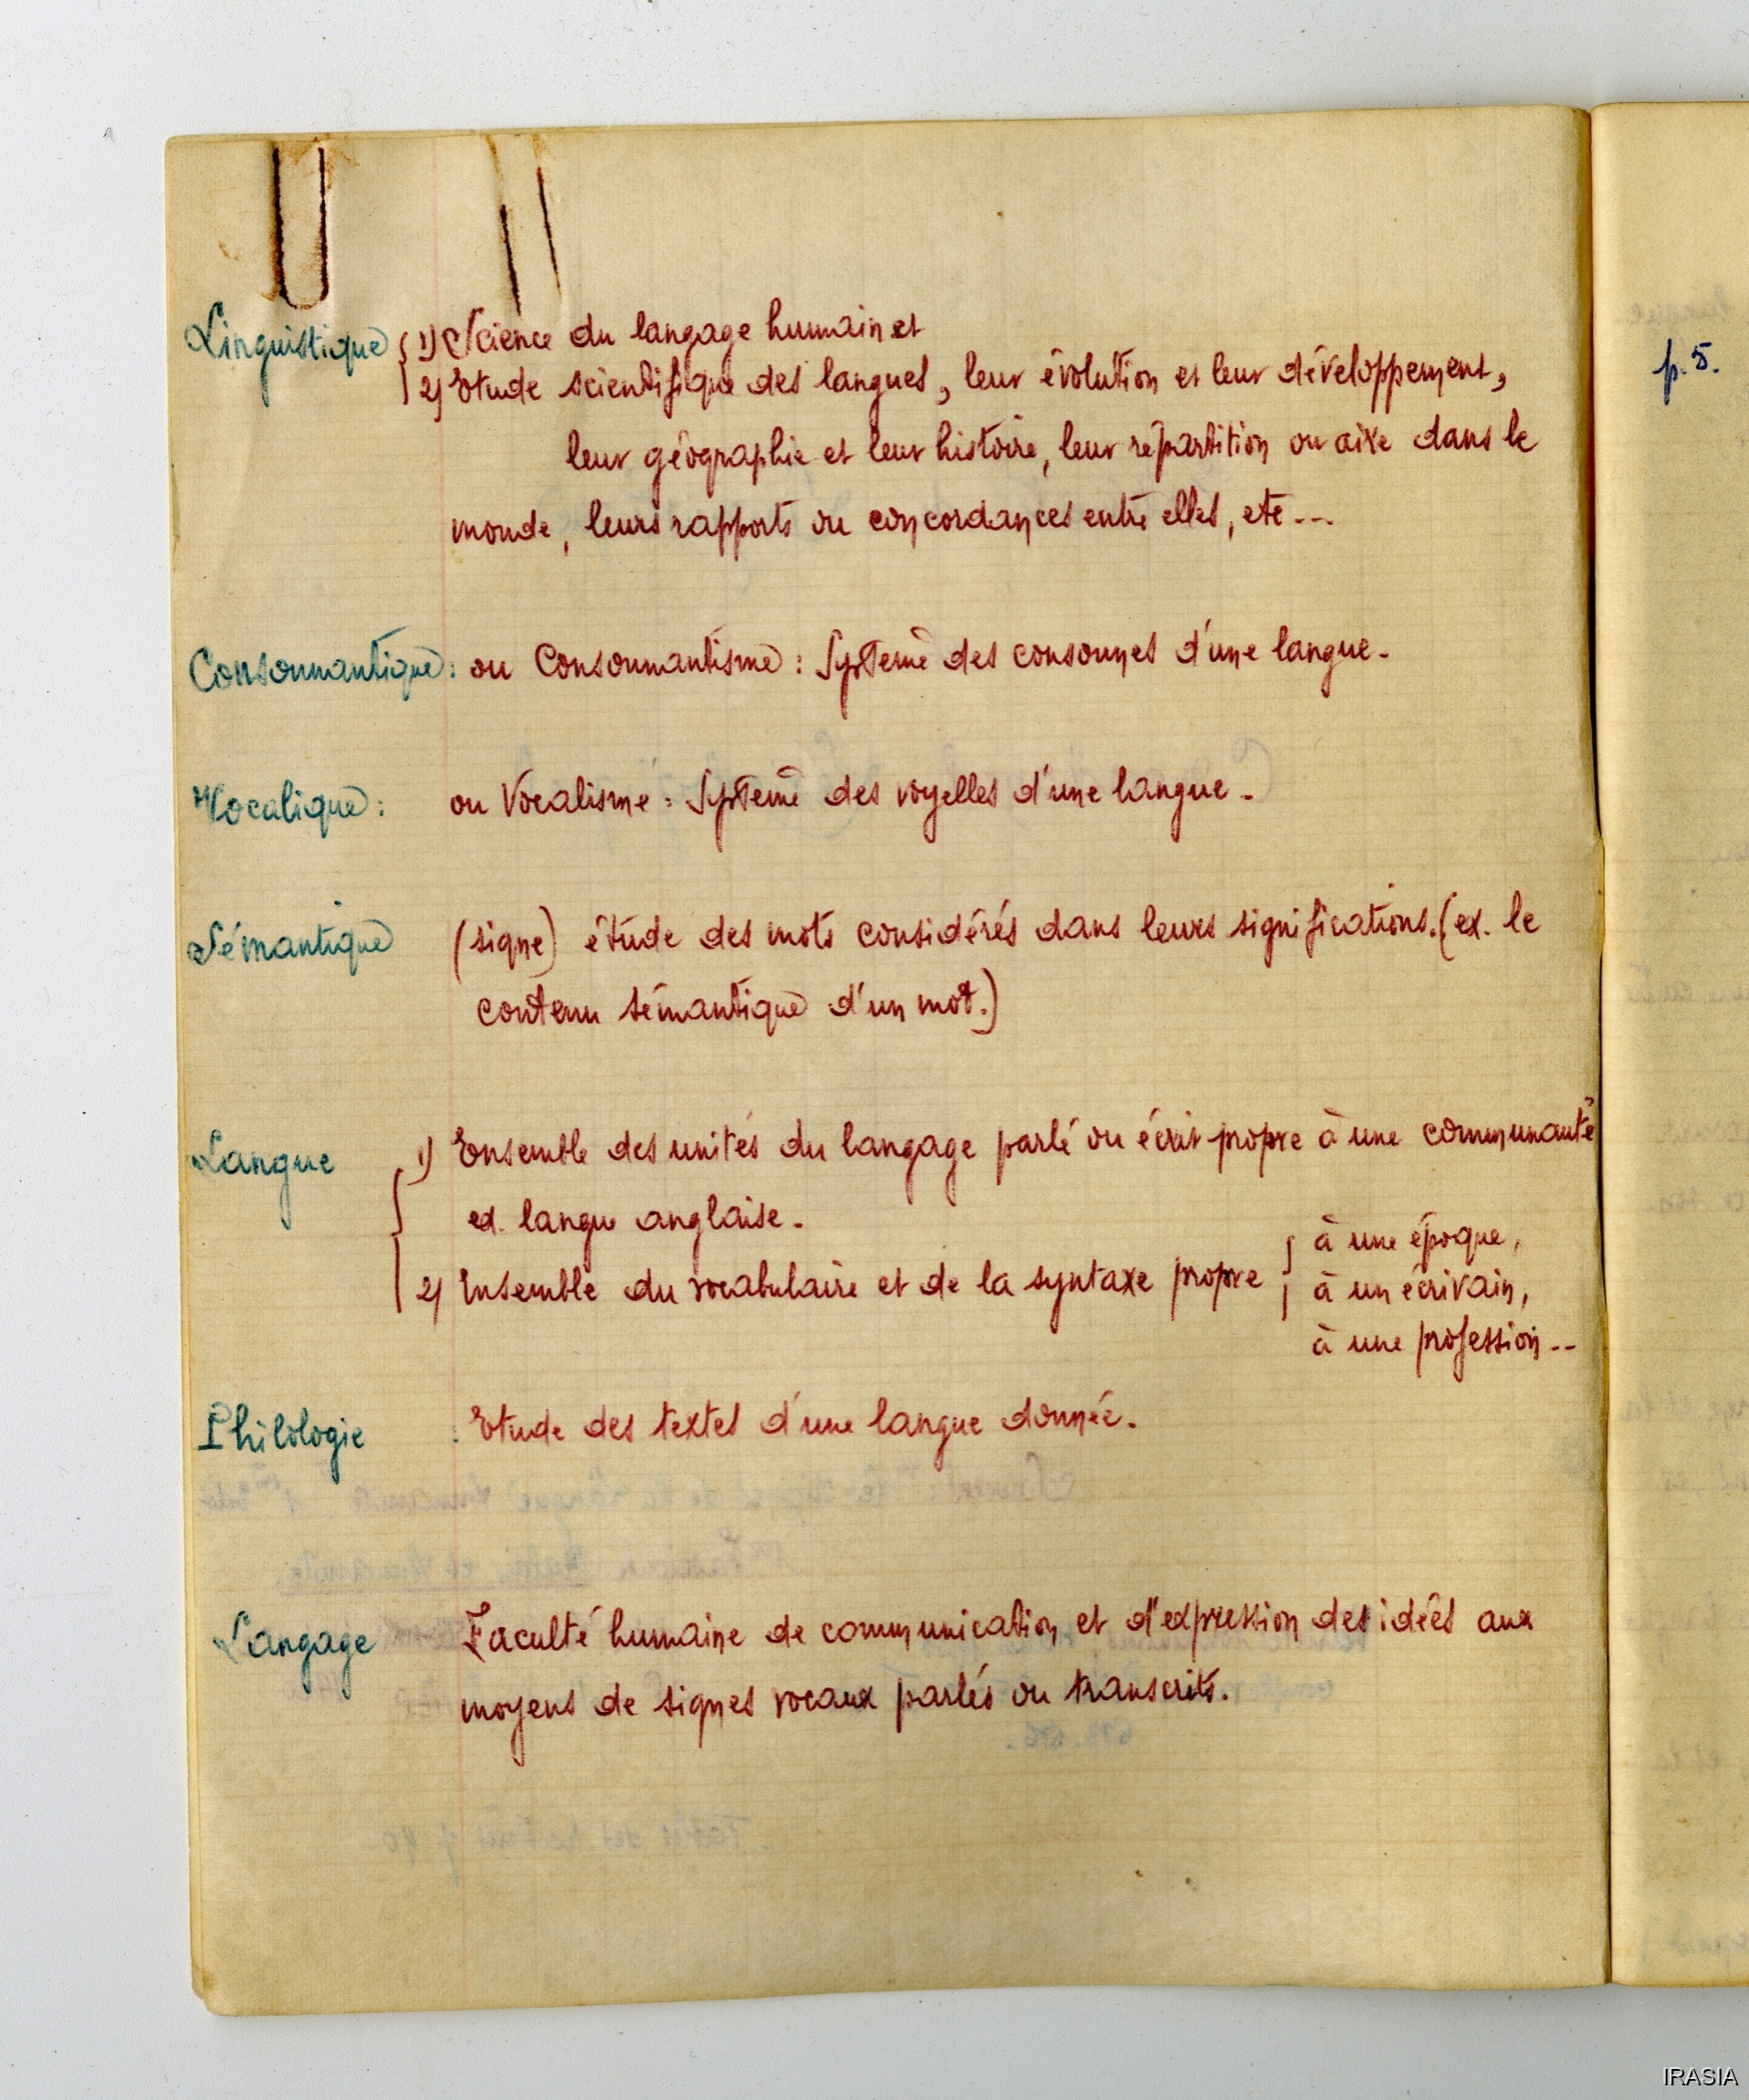 Linguistique { 1) Science du langage humain et
2) Etude scientifique des langues, leur évolution et leur développement,
leur géographie et leur histoire, leur répartition ou aire dans le
monde, leurs rapports ou concordances entre elles, etc...
Consonnantique : ou Consonnantisme : Système des consonnes d'une langue.
Vocalique : ou Vocalisme : Système des voyelles d'une langue.
Sémantique (signe) étude des mots considérés dans leurs significations. (ex. le
contenu sémantique d'un mot.)
Langue { 1) Ensemble des unités du langage parlé ou écrit propre à une communauté
ex. langue anglaise.
2) Ensemble du vocabulaire et de la syntaxe propre { à une époque,
à un écrivain,
à une profession..
Philologie : Etude des textes d'une langue donnée.
Langage Faculté humaine de communication et d'expression des idées aux
moyens de signes vocaux parlés ou transcrits.
p. 5.
IRASIA